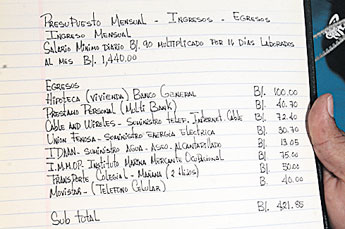 PRESUPUESTO MENSUAL - INGRESOS - EGRESOS
INGRESO MENSUAL
SALARIO MINIMO DIARIO B/. 90 MULTIPLICADO POR 16 DIAS LABORADOS
AL MES B/. 1,440.00
EGRESOS
HIPOTECA (VIVIENDA) BANCO GENERAL B/. 100.00
PRESTAMO PERSONAL (MULTI BANK) B/. 40.70
CABLE AND WIRELES - SUMINISTRO TELEF. INTERNET. CABLE B/. 72.40
UNION FENOSA - SUMINISTRO ENERGIA ELECTRICA B/. 30.70
IDAAN. SUMINISTRO AGUA - ASEO. ALCANTARILLADO B/. 13.05
I.M.M.O.P. INSTITUTO MARINA MERCANTE OCUPACIONAL B/. 75.00
TRANSPORTE COLEGIAL - MAÑANA (2 HIJOS) B/. 50.00
MOVISTAR - (TELEFINO CELULAR) B/. 40.00
SUB TOTAL B/. 421.85